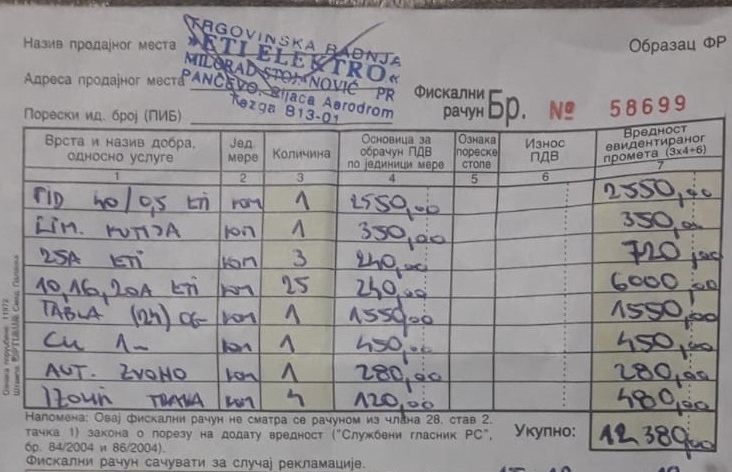 Назив продајног места
ТРГОВИНСКА РАДЊА
»ETI ELEKTRO«
MILORAD STOJANOVIĆ PR
PANČEVO, Buvljaca Aerodrom
Tezga B13-01
Образац ФР
Адреса продајног места
Порески ид. број (ПИБ)
Фискални рачун Бр. № 58699
Врста и назив добра, односно услуге Јед. мере Количина Основица за обрачун ПДВ по јединици мере Ознака пореске стопе Износ ПДВ Вредност евидентираног промета (3x4+6)
1 2 3 4 5 6 7
FID 40/0,5 ETI ком 1 2550,00 2550,00
LIM. KUTIJA ком 1 350,00 350,00
25A ETI ком 3 240,00 720,00
10,16,20A ETI ком 25 240,00 6000,00
TABLA (24) ком 1 1550,00 1550,00
Cu ком 1 450,00 450,00
AUT. ZVONO ком 1 280,00 280,00
IZOLIR TRAKA ком 4 120,00 480,00
Напомена: Овај фискални рачун не сматра се рачуном из члана 28. став 2.
тачка 1) закона о порезу на додату вредност ("Службени гласник РС",
бр. 84/2004 и 86/2004).
Укупно: 12 380,00
Фискални рачун сачувати за случај рекламације.
Ознака поруџбине: 11972